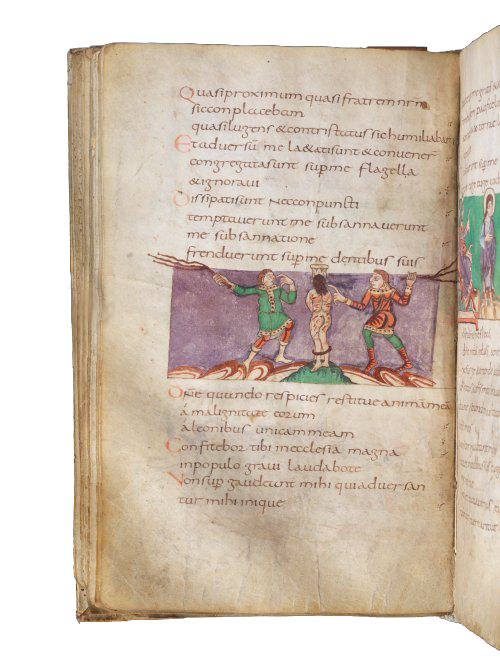 Quasi proximum quasi fratrem nrm
sic conplacebam
quasi lugens & contristatus sic humiliabar
Et adversū me laetati sunt & convener
congregata sunt sup me flagella
& ignoravi
Dissipati sunt nec conpuncti
temptaverunt me subsannaverunt
me subsannatione
frenduerunt super me dentibus suis
Dn̄e quando respicies restitue animā mea
a malignitate eorum
a leonibus unicam meam
Confitebor tibi in ecclesia magna
in populo gravi laudabo te
Non sup gaudeant mihi qui adversan
tur mihi inique